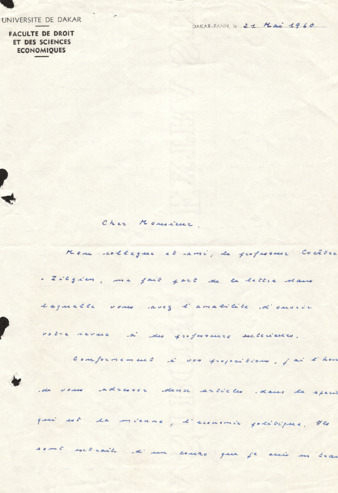 UNIVERSITE DE DAKAR
FACULTE DE DROIT
ET DES SCIENCES
ECONOMIQUES
DAKAR-FANN, le 21 Mai 1960
Cher Monsieur,
Mon collègue et ami, le professeur
, m'a fait part de la lettre dans
laquelle vous avez l'amabilité d'ouvrir
votre revue à des professeurs extérieurs.
Conformément à vos propositions, j'ai l'hon
de vous adresser deux articles dans la spéci
qui est la mienne, l'économie politique. Ils
sont extraits d'un cours que je suis en